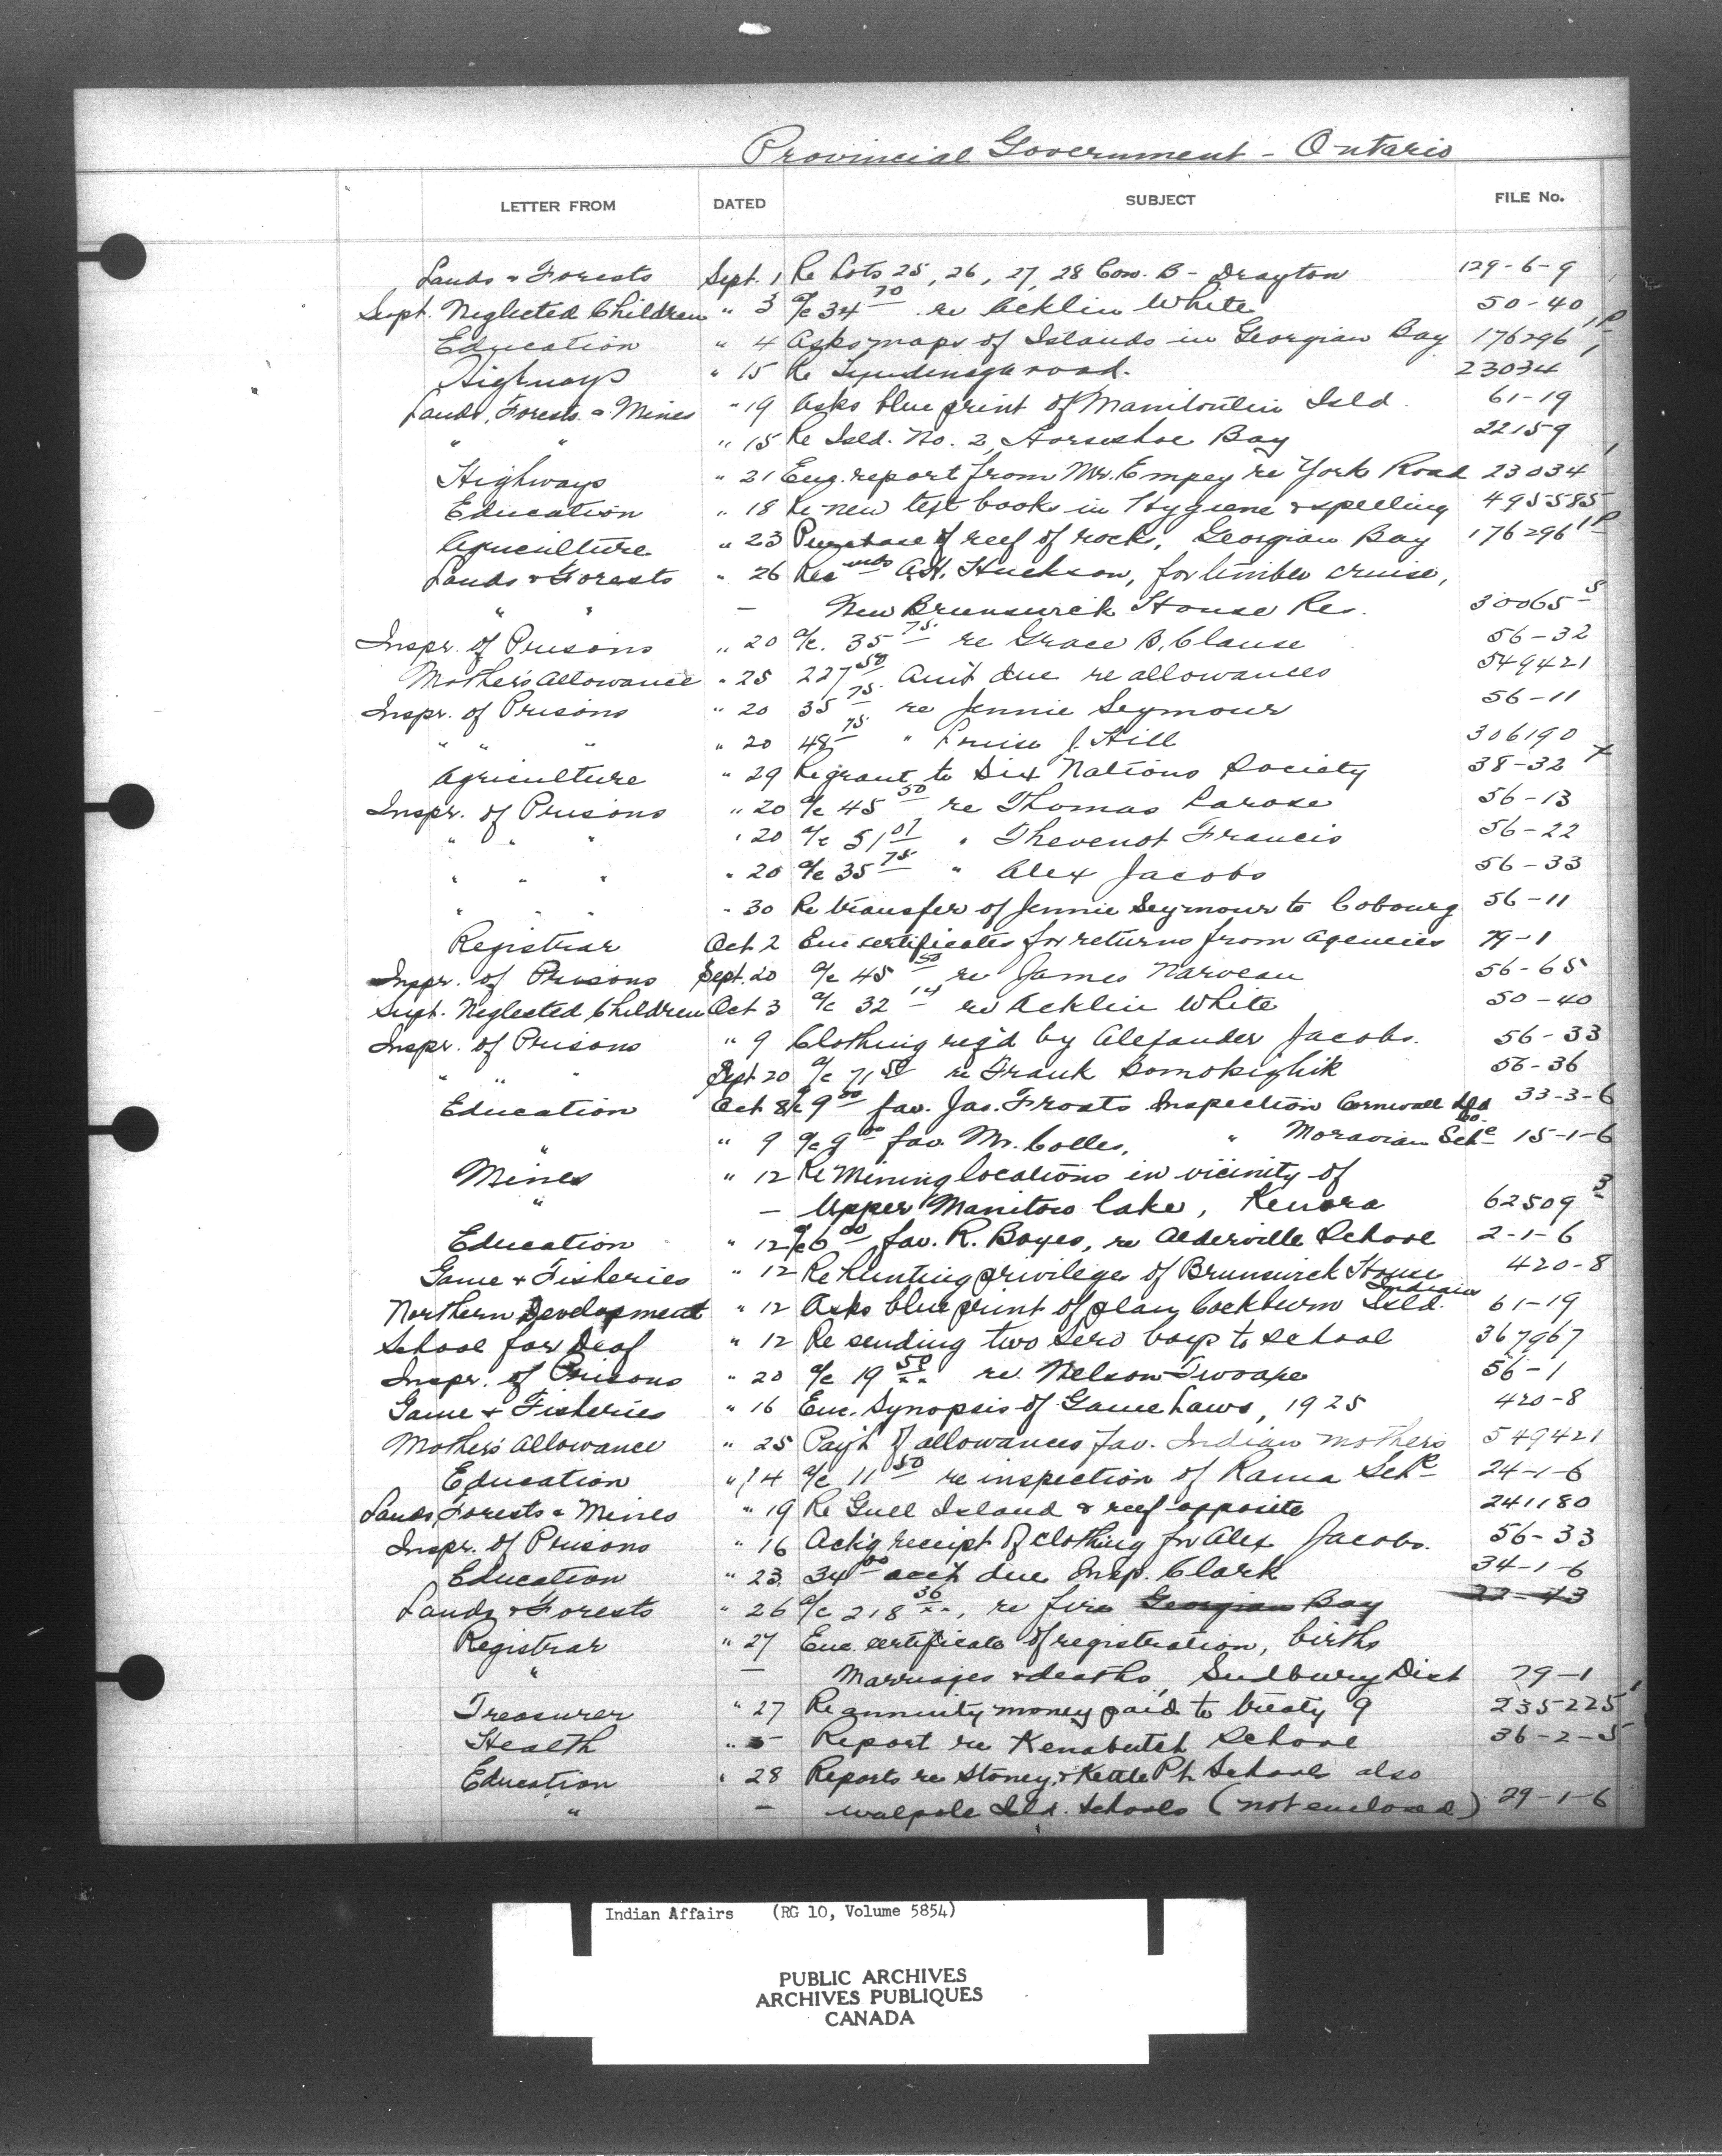 Provincial Government - Ontario
LETTER FROM DATED SUBJECT FILE No.
Lands & Forests Sept. 1 Re Lots 25, 26, 27, 28 Con. B - Drayton 129-6-9
Supt. Neglected Children " 3 a/c 34 70 re Acklin White 50-40
Education " 4 Asks maps of Islands in Georgian Bay 176296 1P
Highways " 15 Re Tyendinaga road. 23034
Lands, Forests & Mines " 19 Asks blue print of Manitoulin Isld. 61-19
" " " 15 Re Isld. No. 2, Horseshoe Bay 22159
Highways " 21 Enc. report from Mr. Empey re York Road 23034
Education " 18 Re new text books in Hygiene & spelling 495585
Agriculture " 23 Purchase of reef of rocks, Georgian Bay 176296 1P
Lands & Forests " 26 Recmds A.H. Huckson, for timber cruise,
" " — New Brunswick House Res. 30065 5
Inspr. of Prisons " 20 a/c. 35 75 re Grace B. Clause 56-32
Mother's Allowance " 25 227 50 Am't due re allowances 549421
Inspr. of Prisons " 20 35 75 re Jennie Seymour 56-11
" " " " 20 48 75 " Louise J. Hill 306190
Agriculture " 29 Re grant to Six Nations Society 38-32
Inspr. of Prisons " 20 a/c 45 50 re Thomas Larose 56-13
" " " " 20 a/c 51 07 " Thevenot Francis 56-22
" " " " 20 a/c 35 75 " Alex Jacobs 56-33
" " " " 30 Re transfer of Jennie Seymour to Cobourg 56-11
Registrar Oct. 2 Enc certificates for returns from agencies 79-1
Inspr. of Prisons Sept. 20 a/c 45 50 re James Narveau 56-65
Supt. Neglected Children Oct 3 a/c 32 14 re Acklin White 50-40
Inspr. of Prisons " 9 Clothing req'd by Alexander Jacobs. 56-33
" " " Sept 20 a/c 71 50 re Frank 56-36
Education Oct 8 a/c 9 00 fav. Jas. Froats Inspection Cornwall Isld 33-3-6
" " 9 a/c 9 00 fav. Mr. Colles, " Moravian Sch. 15-1-6
Mines " 12 Re Mining locations in vicinity of
" — Upper Manitou Lake, Kenora 62509 3
Education " 12 a/c 6 00 fav. R. Boyes, re Alderville School 2-1-6
Game & Fisheries " 12 Re Hunting privileges of Brunswick House Indians 420-8
Northern Development " 12 Asks blue print of plan Cockburn Isld. 61-19
School for Deaf " 12 Re sending two Sero boys to school 367967
Inspr. of Prisons " 20 a/c 19 50 re. Nelson 56-1
Game & Fisheries " 16 Enc. Synopsis of Game Laws, 1925 420-8
Mother's Allowance " 25 Pay't of allowances fav. Indian mothers 549421
Education " 14 a/c 11 50 re inspection of Rama Sch. 24-1-6
Lands, Forests & Mines " 19 Re Gull Island & reef opposite 241180
Inspr. of Prisons " 16 Ack'g receipt of clothing for Alex Jacobs. 56-33
Education " 23 34 00 acc't due Insp. Clark 34-1-6
Lands & Forests " 26 a/c 218 36, re fire Georgian Bay 22-43
Registrar " 27 Enc. certificate of registration, births
" — Marriages & deaths, Sudbury Dist 79-1
Treasurer " 27 Re annuity money paid to treaty 9 235225
Health " 5 Report re Kenabutch School 36-2-5
Education " 28 Reports re Stoney & Kettle Pt. Schools also
" — Walpole Isld. Schools (not enclosed) 29-1-6
Indian Affairs (RG 10, Volume 5854)
PUBLIC ARCHIVES
ARCHIVES PUBLIQUES
CANADA